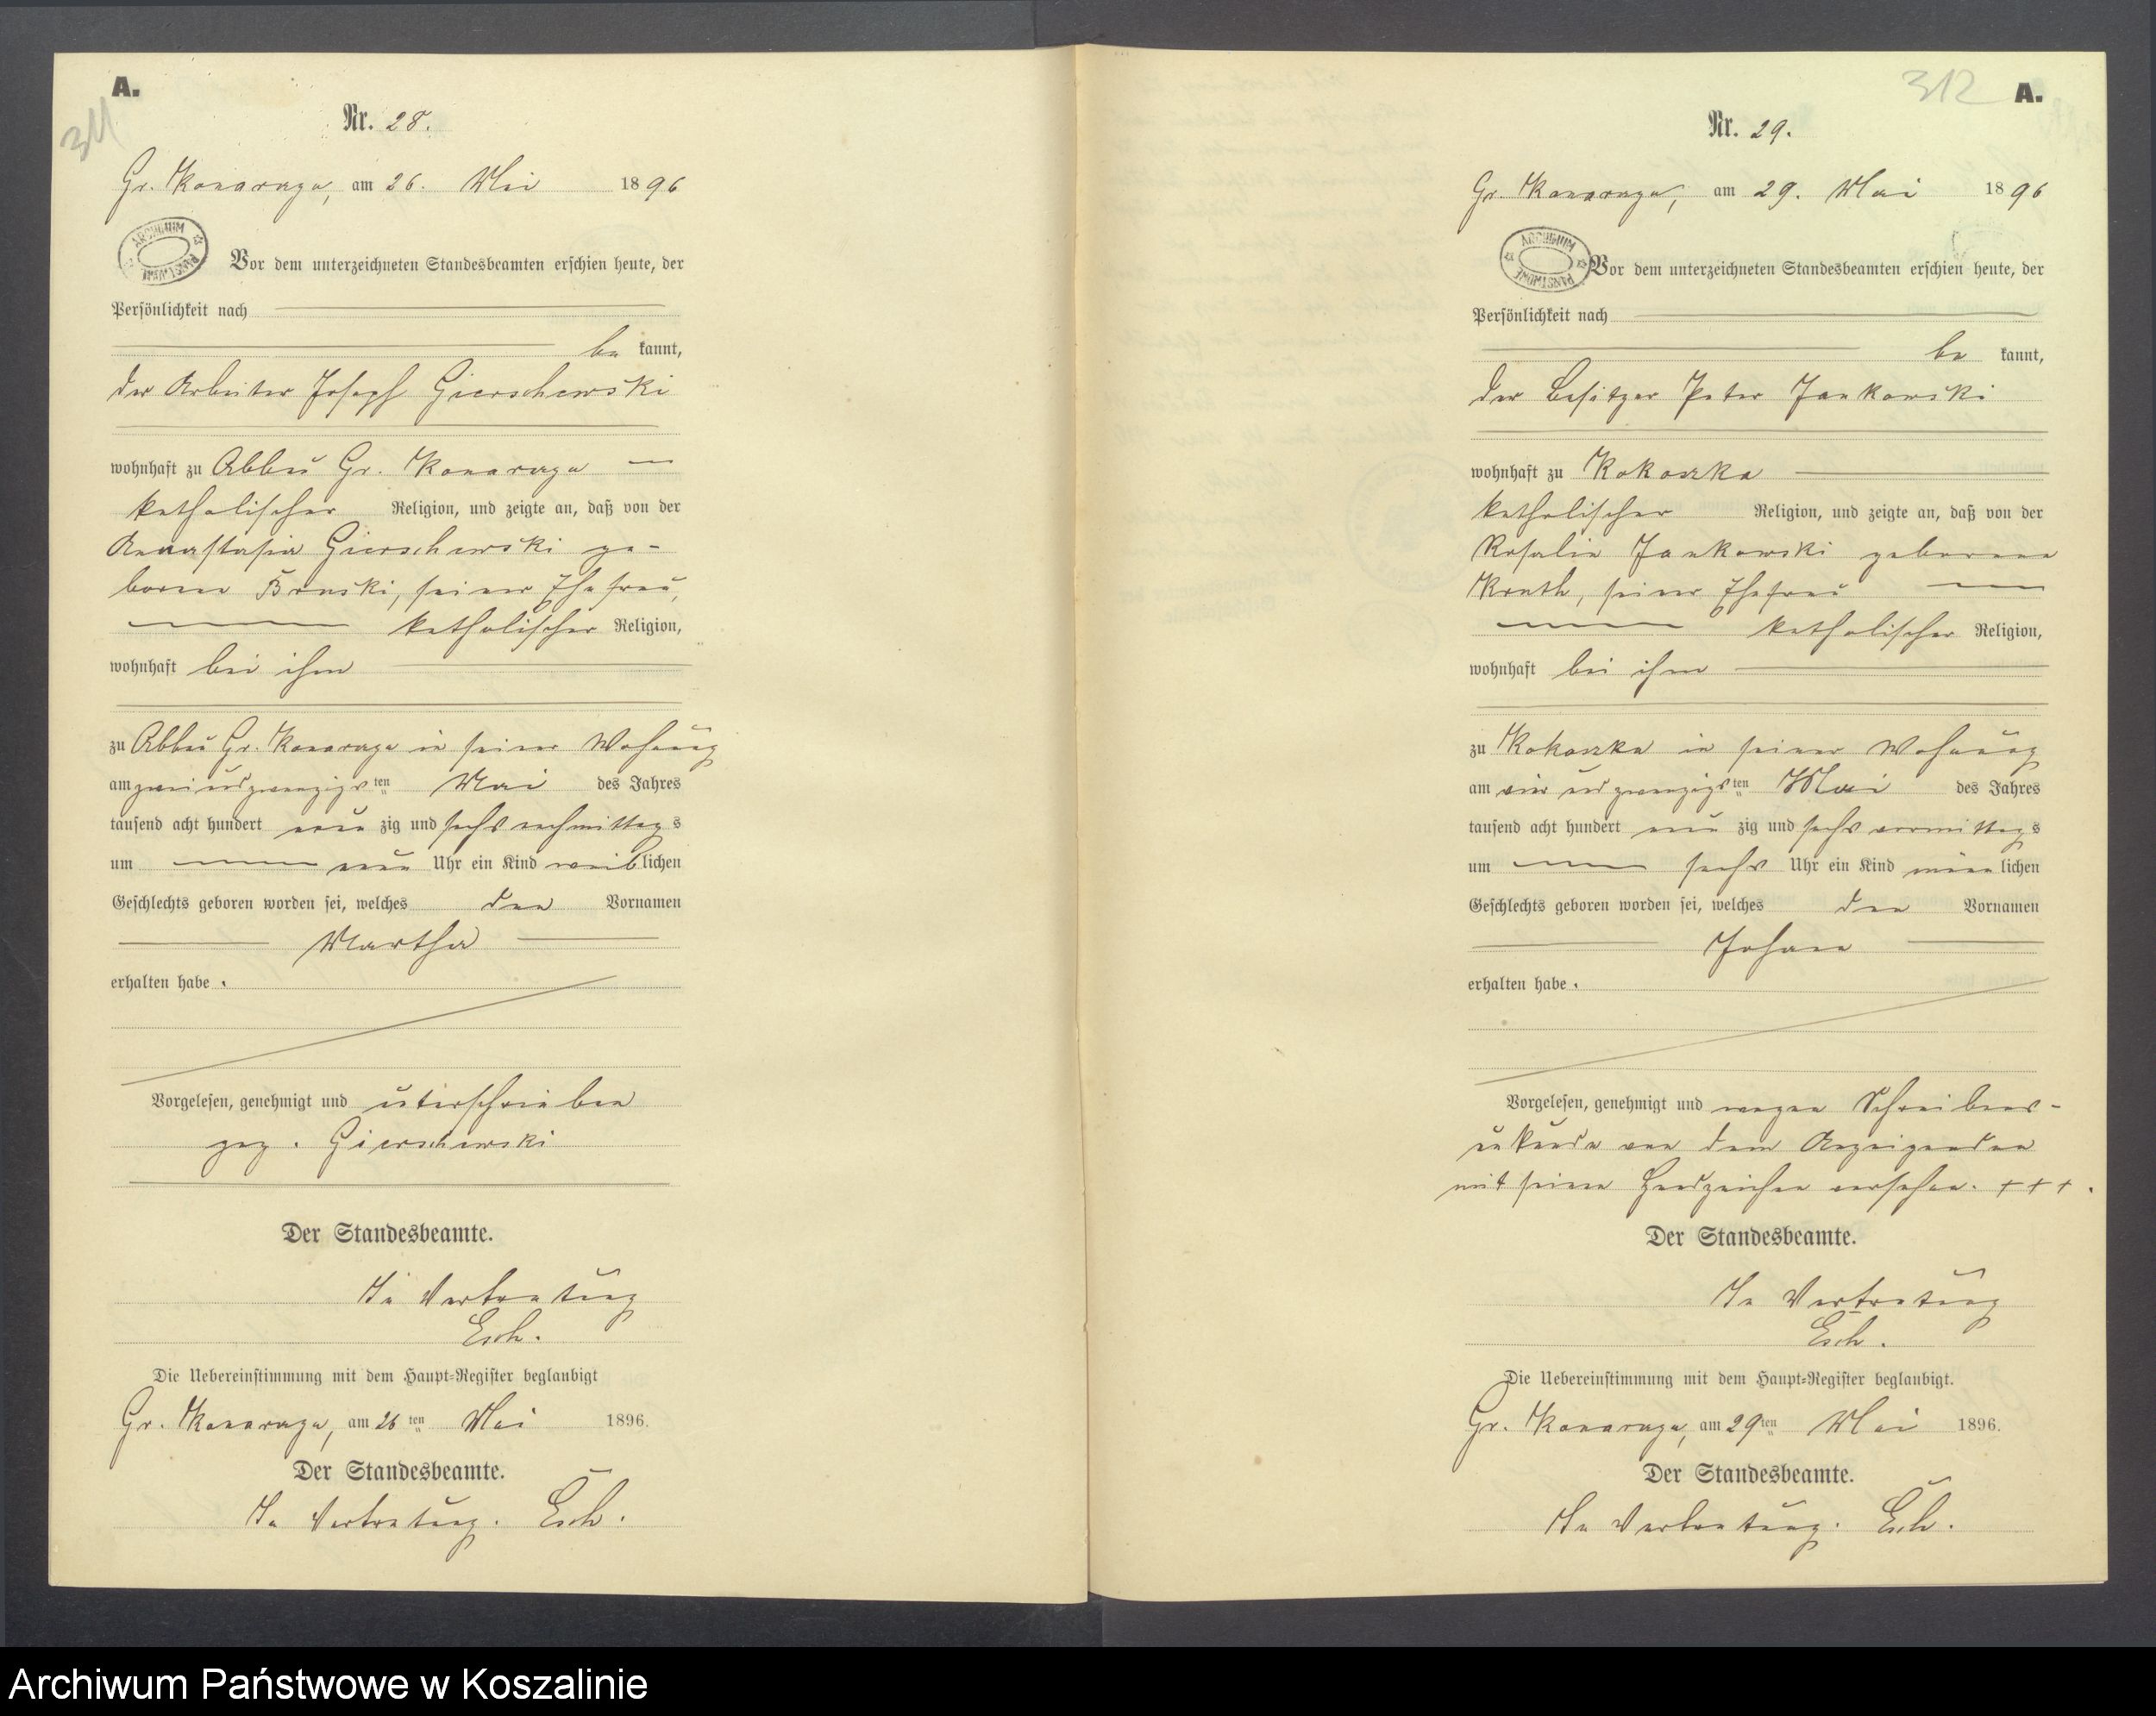 A.
311
Nr. 28.
Gr. Konarzyn, am 26. Mai 1896
ARCHIWUM PAŃSTWOWE
Vor dem unterzeichneten Standesbeamten erschien heute, der
Persönlichkeit nach
be kannt,
der Arbeiter Joseph Gierschewski
wohnhaft zu Abbau Gr. Konarzyn
katholischer Religion, und zeigte an, daß von der
Anastasia Gierschewski ge-
borene Bruski, seiner Ehefrau,
katholischer Religion,
wohnhaft bei ihm
zu Abbau Gr. Konarzyn in seiner Wohnung
am zwei und zwanzigsten Mai des Jahres
tausend acht hundert neun zig und sechs nachmittags
um neun Uhr ein Kind weiblichen
Geschlechts geboren worden sei, welches den Vornamen
Martha
erhalten habe.
Vorgelesen, genehmigt und unterschrieben
gez. Gierschewski
Der Standesbeamte.
In Vertretung
Esch.
Die Uebereinstimmung mit dem Haupt-Register beglaubigt
Gr. Konarzyn, am 26ten Mai 1896.
Der Standesbeamte.
In Vertretung. Esch.
312 A.
Nr. 29.
Gr. Konarzyn, am 29. Mai 1896
ARCHIWUM PAŃSTWOWE
Vor dem unterzeichneten Standesbeamten erschien heute, der
Persönlichkeit nach
be kannt,
der Besitzer Peter Jankowski
wohnhaft zu Kokoszka
katholischer Religion, und zeigte an, daß von der
Rosalie Jankowski geborene
seiner Ehefrau
katholischer Religion,
wohnhaft bei ihm
zu Kokoszka in seiner Wohnung
am vier und zwanzigsten Mai des Jahres
tausend acht hundert neun zig und sechs vormittags
um sechs Uhr ein Kind männlichen
Geschlechts geboren worden sei, welches den Vornamen
Johann
erhalten habe.
Vorgelesen, genehmigt und wegen Schreibens-
unkunde von dem Anzeigenden
mit seinem Handzeichen versehen. +++.
Der Standesbeamte.
In Vertretung
Esch.
Die Uebereinstimmung mit dem Haupt-Register beglaubigt.
Gr. Konarzyn, am 29ten Mai 1896.
Der Standesbeamte.
In Vertretung. Esch.
Archiwum Państwowe w Koszalinie